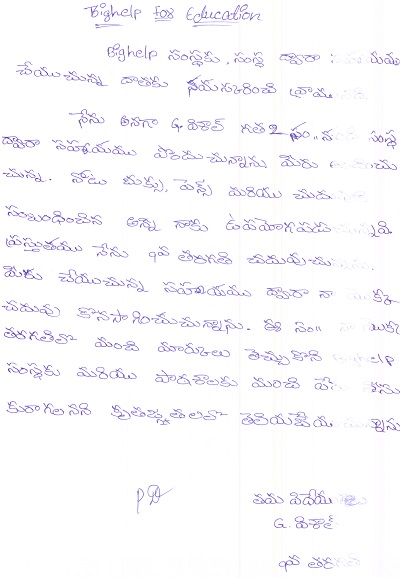 Bighelp for Education
Bighelp సంస్థకు, సంస్థ ద్వారా
చేయుచున్న దాతకు నమస్కరించి వ్రాయు
నేను అనగా G. విశాల్ గత 2 సం,, సంస్థ
ద్వారా సహాయము పొందుచున్నాను మీరు
చున్న. నోటు బుక్కు, పెన్స్ మరియు చదువు
సంబంధించిన అన్నీ నాకు ఉపయోగపడు
ప్రస్తుతము నేను 9వ తరగతి చదువుచు
మీరు చేయుచున్న సహాయము ద్వారా నా
చదువు కొనసాగించుచున్నాను. ఈ సం,,
తరగతిలో మంచి మార్కులు తెచ్చుకొని
సంస్థకు మరియు పాఠశాలకు మంచి
కృతజ్ఞతలతో
తమ విధేయ
G. విశాల్
9వ తరగతి